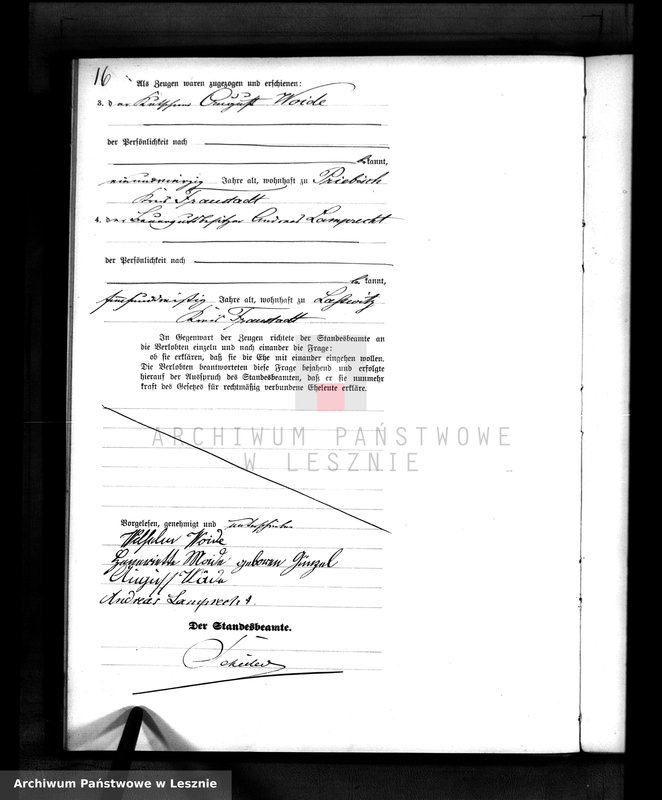 16
Als Zeugen waren zugezogen und erschienen:
3. der Kutschner August Woide
der Persönlichkeit nach
be kannt,
einundvierzig Jahre alt, wohnhaft zu Priebisch
Kreis Fraustadt
4. der Bauerngutsbesitzer Andreas Lamprecht
der Persönlichkeit nach
be kannt,
fünfunddreißig Jahre alt, wohnhaft zu Laßwitz
Kreis Fraustadt
In Gegenwart der Zeugen richtete der Standesbeamte an
die Verlobten einzeln und nach einander die Frage:
ob sie erklären, daß sie die Ehe mit einander eingehen wollen.
Die Verlobten beantworteten diese Frage bejahend und erfolgte
hierauf der Ausspruch des Standesbeamten, daß er sie nunmehr
kraft des Gesetzes für rechtmäßig verbundene Eheleute erkläre.
ARCHIWUM PAŃSTWOWE
W LESZNIE
Vorgelesen, genehmigt und unterschrieben
Wilhelm Woide
Henriette Woide geboren Günzel
August Woide
Andreas Lamprecht
Der Standesbeamte.
Archiwum Państwowe w Lesznie